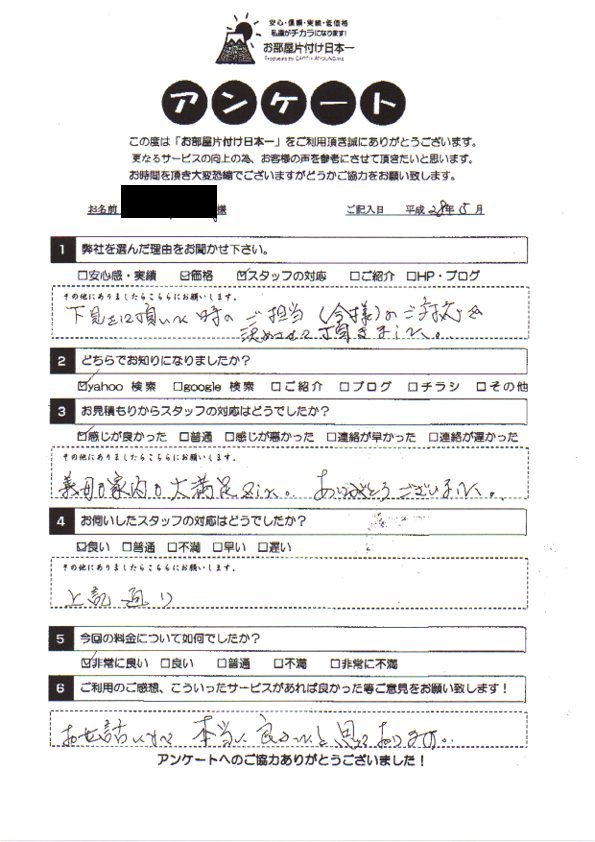 安心・信頼・実績・低価格
私達がチカラになります!
お部屋片付け日本一
アンケート
この度は「お部屋片付け日本一」をご利用頂き誠にありがとうございます。
更なるサービスの向上の為、お客様の声を参考にさせて頂きたいと思います。
お時間を頂き大変恐縮でございますがどうかご協力をお願い致します。
お名前 様 ご記入日 平成 28年 5月
1 弊社を選んだ理由をお聞かせ下さい。
□安心感・実績 ☑価格 ☑スタッフの対応 □ご紹介 □HP・ブログ
その他にありましたらこちらにお願いします。
下見をして頂いた時のご担当(今様)の
決めさせて頂きました。
2 どちらでお知りになりましたか?
☑yahoo 検索 □google 検索 □ご紹介 □ブログ □チラシ □その他
3 お見積もりからスタッフの対応はどうでしたか?
☑感じが良かった □普通 □感じが悪かった □連絡が早かった □連絡が遅かった
その他にありましたらこちらにお願いします。
義母も家内も大満足でした。ありがとうございました。
4 お伺いしたスタッフの対応はどうでしたか?
☑良い □普通 □不満 □早い □遅い
その他にありましたらこちらにお願いします。
上記通り
5 今回の料金について如何でしたか?
☑非常に良い □良い □普通 □不満 □非常に不満
6 ご利用のご感想、こういったサービスがあれば良かった等ご意見をお願い致します!
お世話になって 本当に良かったと思っております。
アンケートへのご協力ありがとうございました!